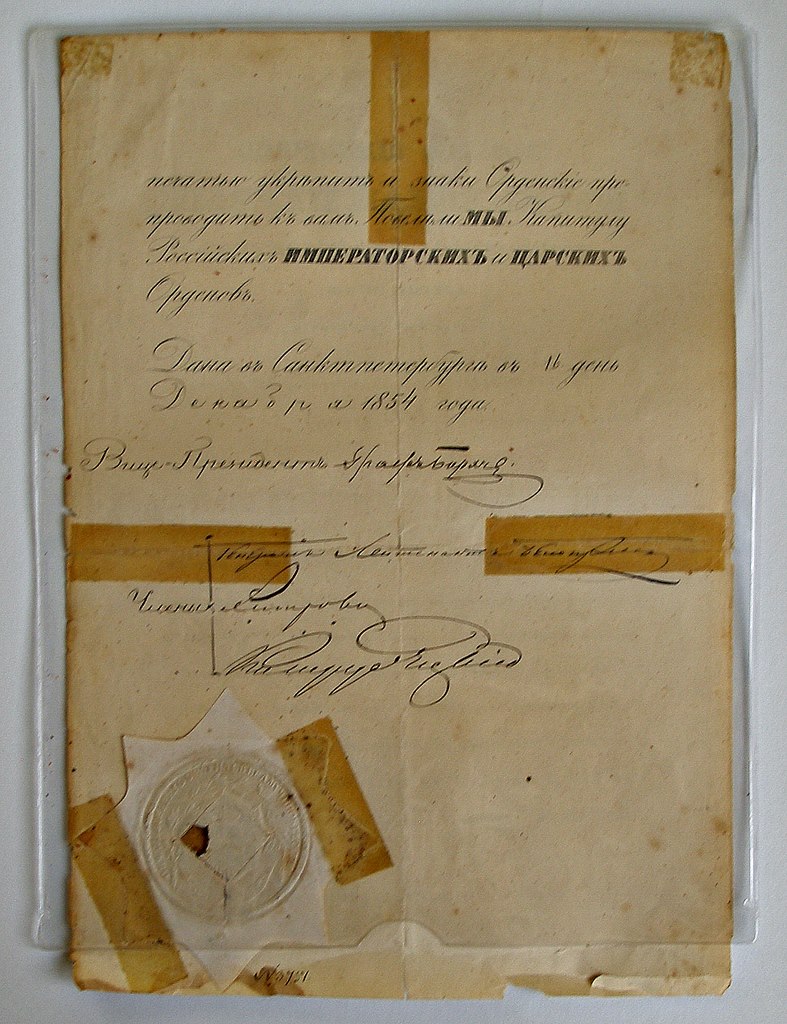 печатью укрѣпить и знаки Орденскіе пре-
проводить къ вамъ. Повелѣли МЫ Капитулу
Россійскихъ ИМПЕРАТОРСКИХЪ и ЦАРСКИХЪ
Орденовъ.
Дана въ Санктпетербургѣ въ 16 день
Декабря 1854 года.
Вице-Президентъ Графъ Борхъ.
Генералъ Лейтенантъ
Члены: